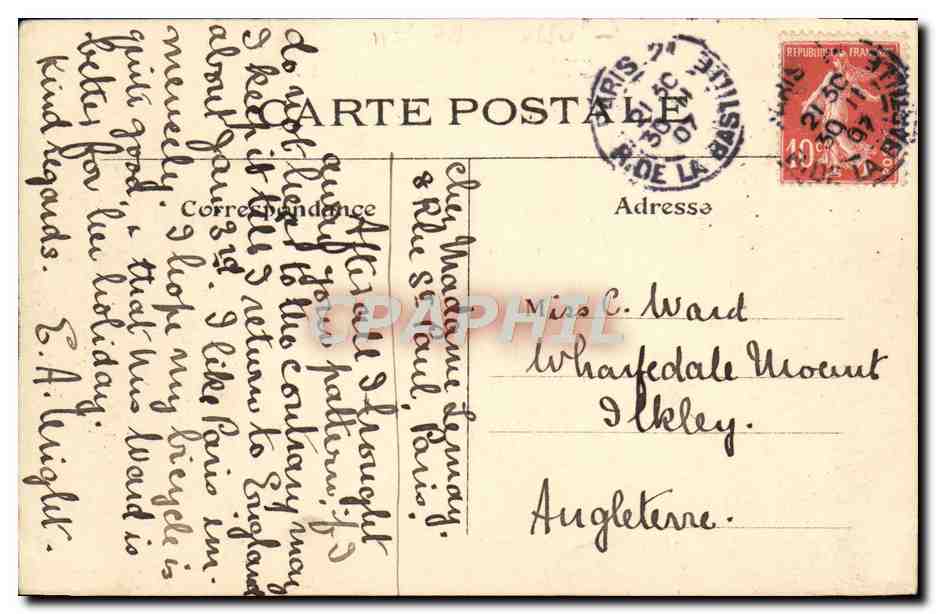 CARTE POSTALE
Correspondance
Adresse
REPUBLIQUE FRANÇAISE
10c
PARIS
21 30
30 11
07
R. DE LA BASTILLE
chez Madame Lemay.
8 Rue St. Paul. Paris.
After all I brought
away your pattern. If I
do not hear to the contrary may
I keep it till I return to England
about Jany 3rd. I like Paris im-
mensely. I hope my bicycle is
quite good, & that Miss Ward is
better for her holiday.
Kind regards. E. A. Wright.
Miss C. Ward
Wharfedale Mount
Ilkley.
Angleterre.
CPAPHIL